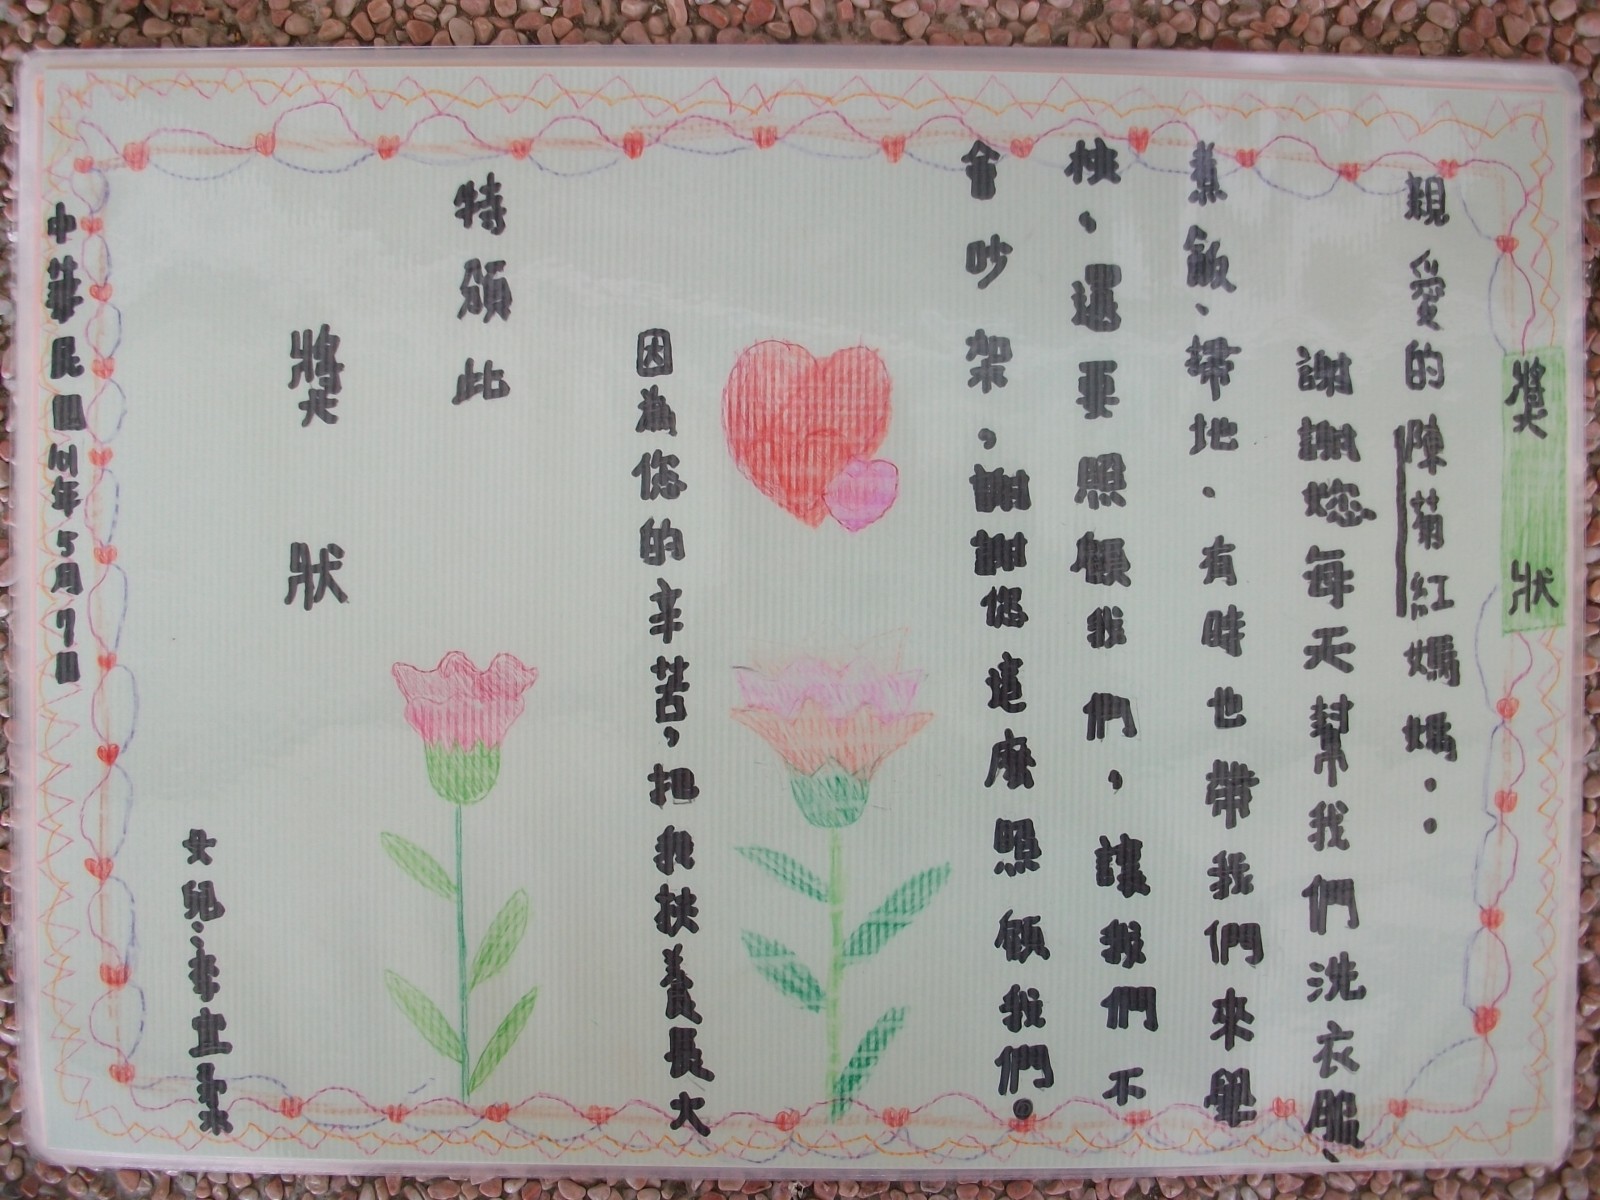 獎狀
親愛的陳菊紅媽媽：
謝謝您每天幫我們洗衣服、
煮飯、掃地。有時也帶我們來學
校，還要照顧我們，讓我們不
會吵架，謝謝您這麼照顧我們。
因為您的辛苦，把我扶養長大
特頒此
獎狀
女兒：李宜
中華民國 年5月7日